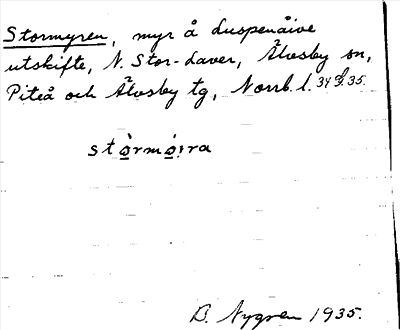 Stormyren, myr å Luspenäive
utskifte, N. Stor-Laver, Älvsby sn,
Piteå och Älvsby tg, Norrb. l. 34 35.
stòrmø:ra
B. Nygren 1935.